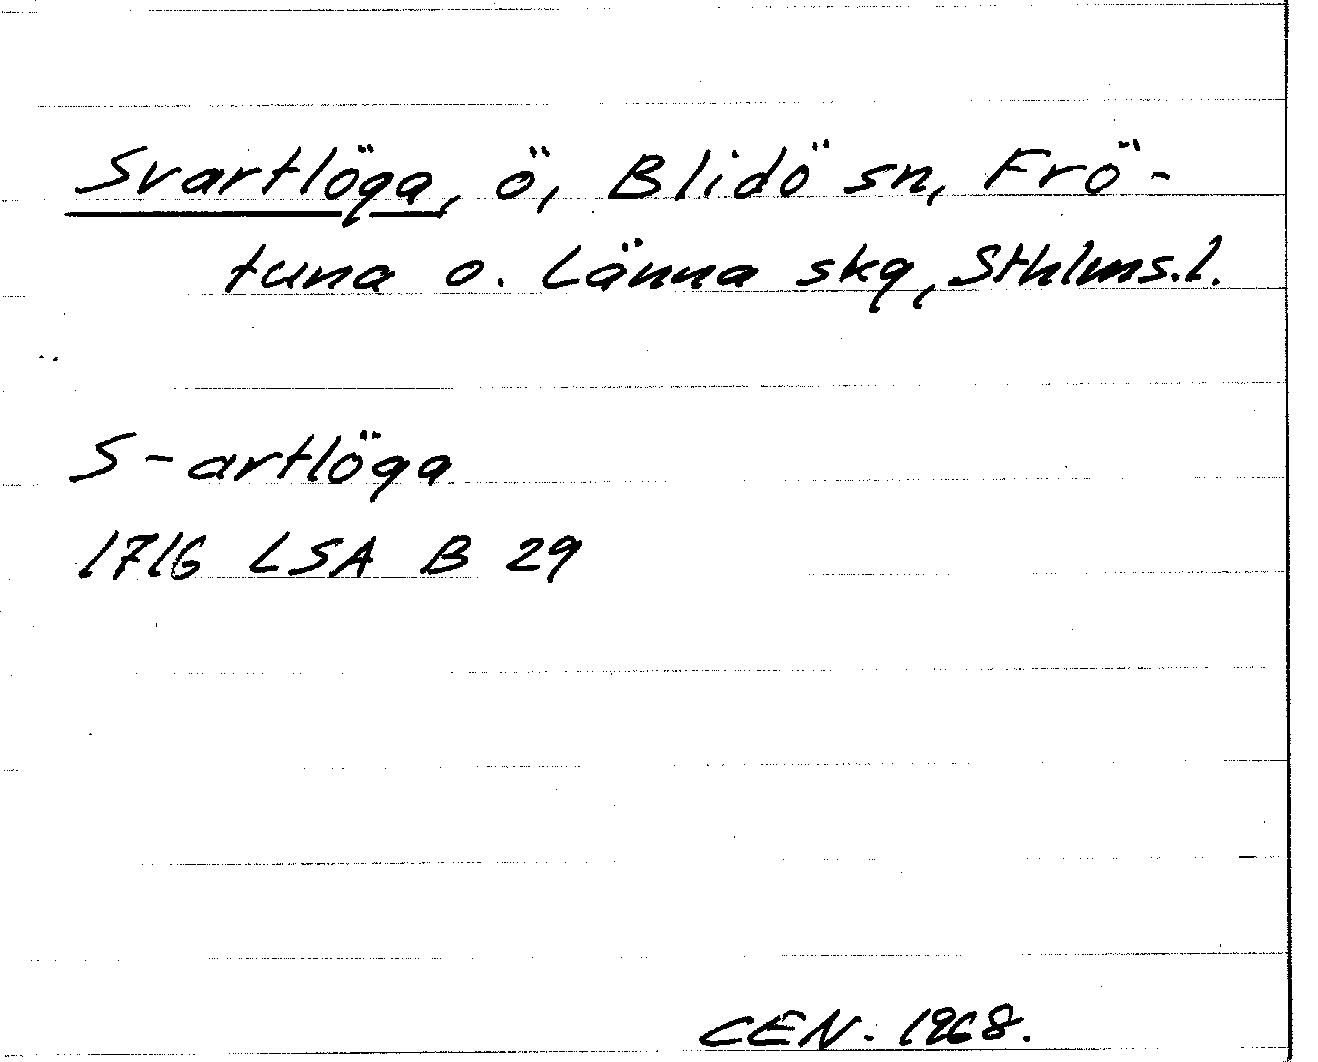 Svartlöga, ö, Blidö sn, Frö-
tuna o. Länna skg, Sthlms.l.
S-artlöga
1716 LSA B 29
CEN. 1968.